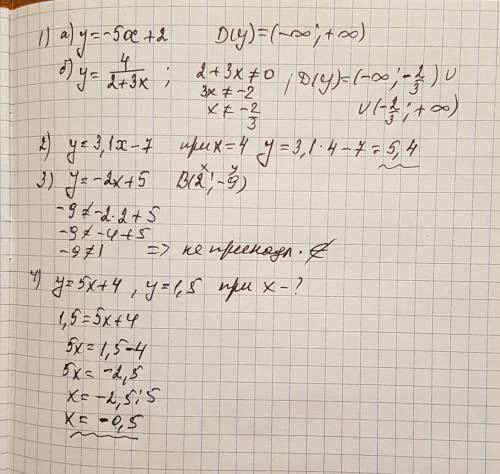 1) а) y=-5x+2 D(y)=(-∞;+∞)
б) y=4/(2+3x) ; 2+3x≠0 ; D(y)=(-∞;-2/3) ∪
3x≠-2
x≠-2/3 ∪(-2/3;+∞)
2) y=3,1x-7 при x=4 y=3,1·4-7=5,4
x y
3) y=-2x+5 B(2;-9)
-9≠-2·2+5
-9≠-4+5
-9≠1 => не принадл. ∉
4) y=5x+4, y=1,5 при x-?
1,5=5x+4
5x=1,5-4
5x=-2,5
x=-2,5:5
x=-0,5